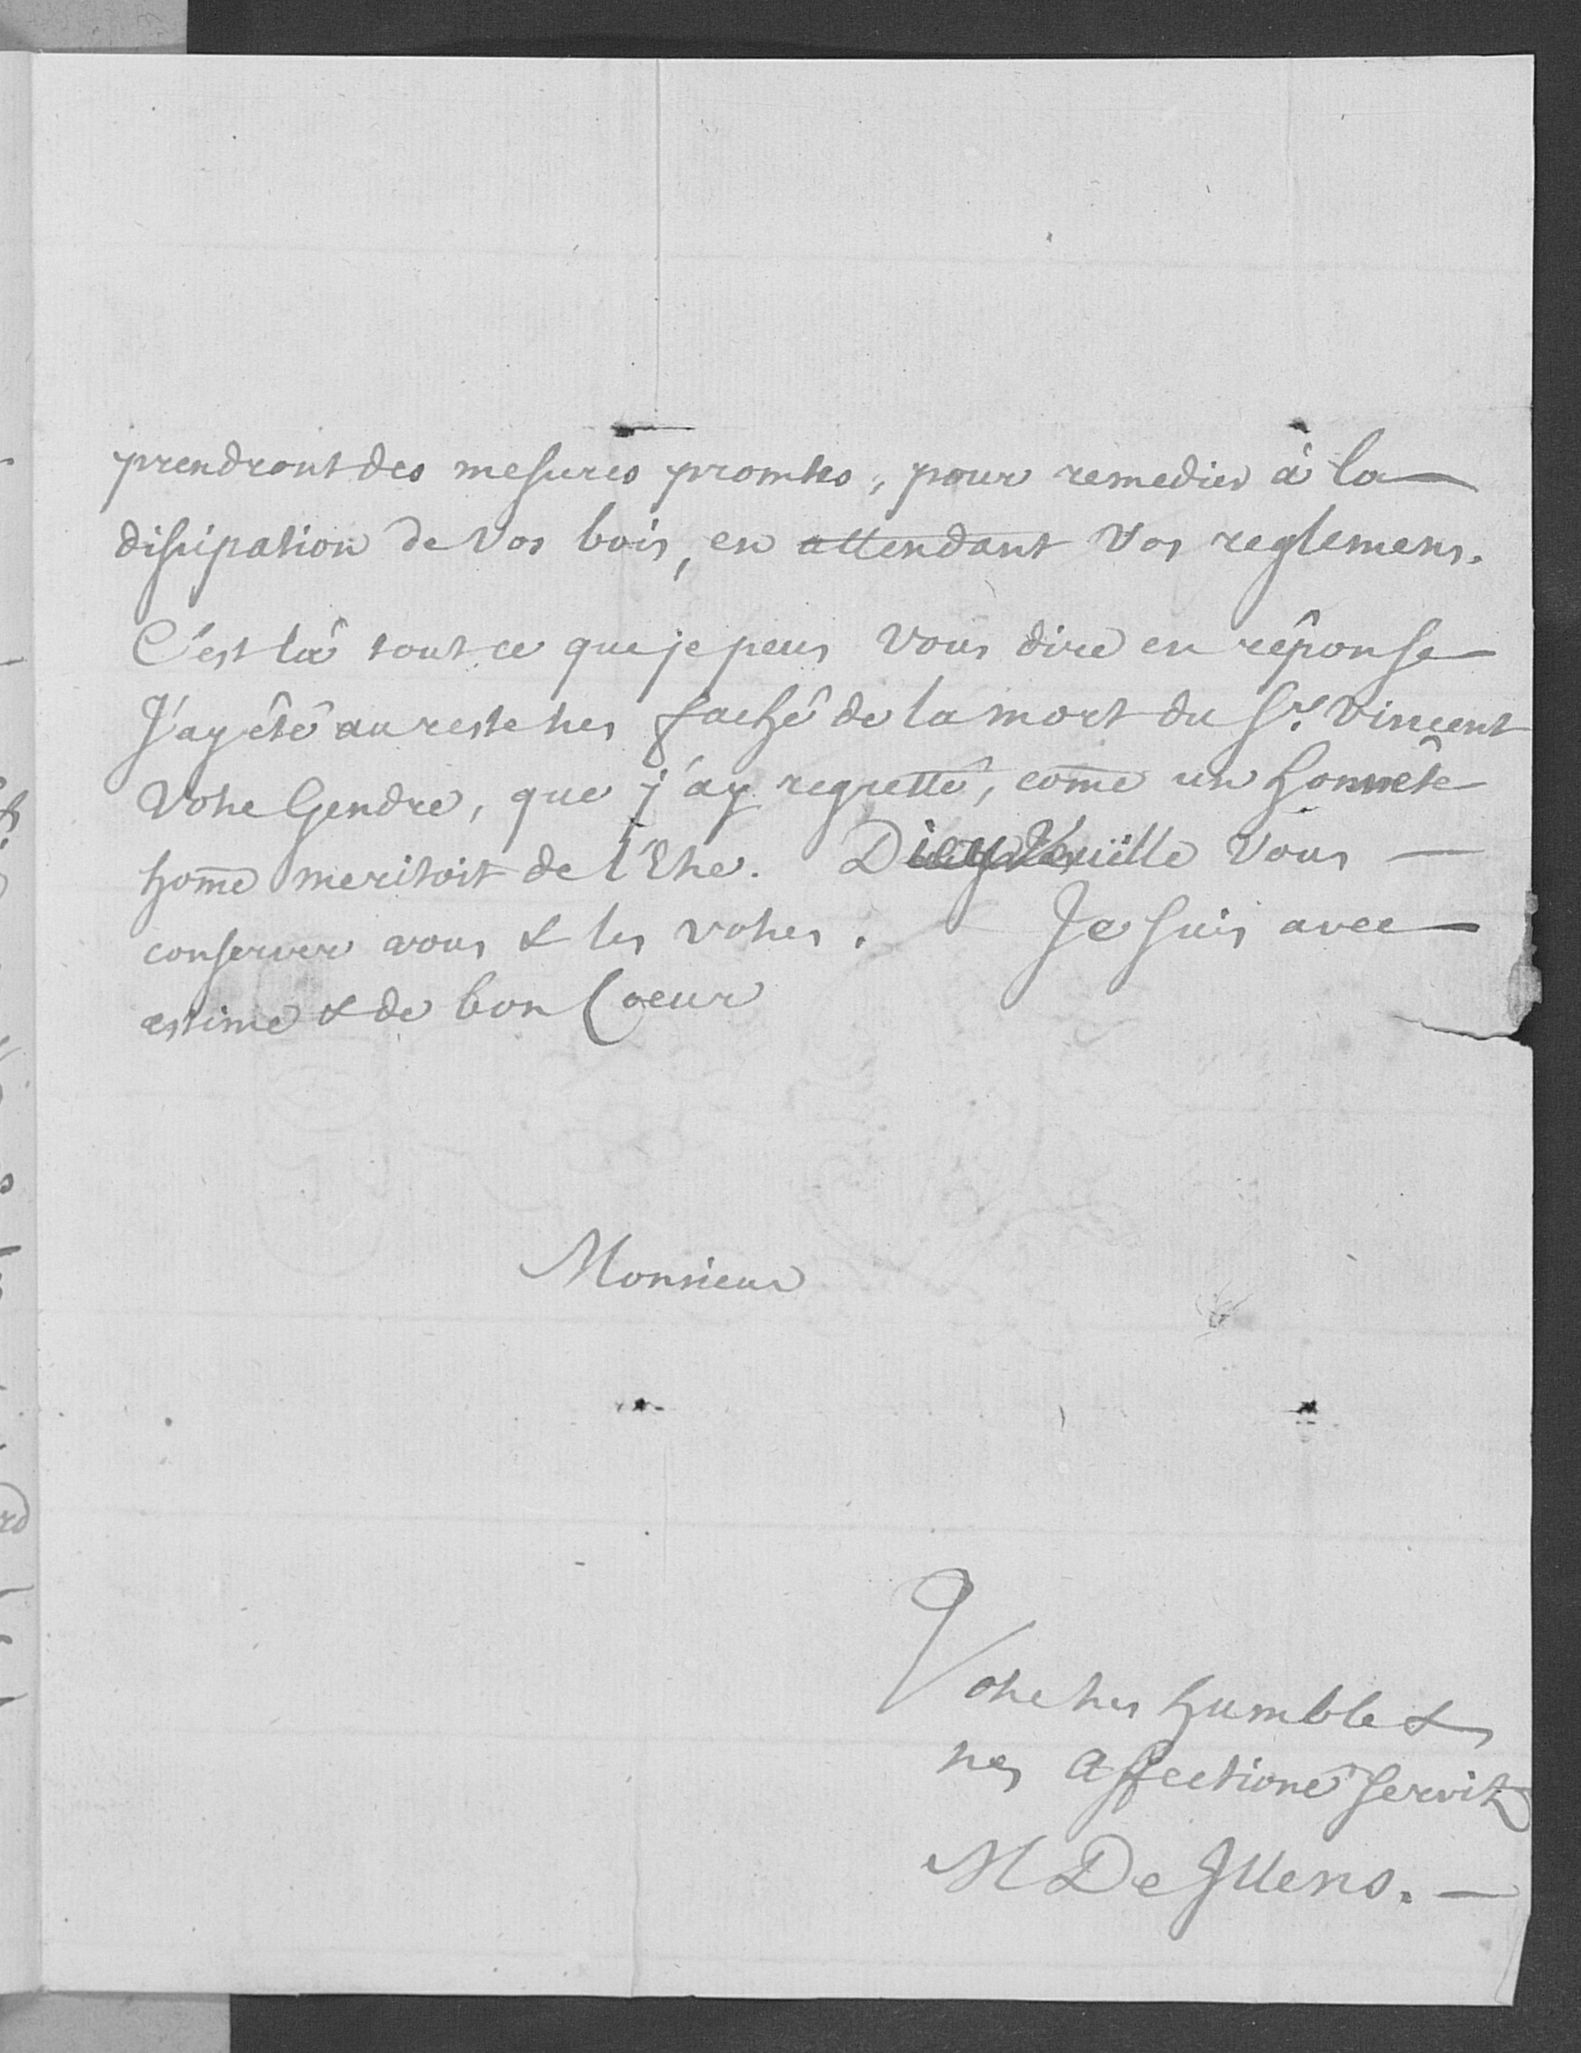 prendront des mesures promtes, pour remedier à la
dissipation de vos bois, en attendant vos reglemens.
C'est là tout ce que je peus vous dire en rêponse
J'ay êtê au reste tres fachê de la mort du Sr. Vincent
votre Gendre, que j'ay regrettê, come un honnête
home meritoit de l'Etre. Dieu Veuille vous
conserver vous & les votres. Je suis avec
estime & de bon Coeur
Monsieur
Votre tres humble &
tres affectionê servitr
M De